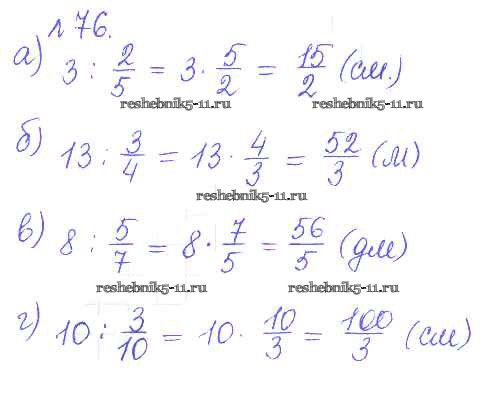 № 76.
а) 3 : 2/5 = 3 · 5/2 = 15/2 (см.)
reshebnik5-11.ru reshebnik5-11.ru
б) 13 : 3/4 = 13 · 4/3 = 52/3 (м)
reshebnik5-11.ru
в) 8 : 5/7 = 8 · 7/5 = 56/5 (дм)
reshebnik5-11.ru reshebnik5-11.ru
г) 10 : 3/10 = 10 · 10/3 = 100/3 (см)